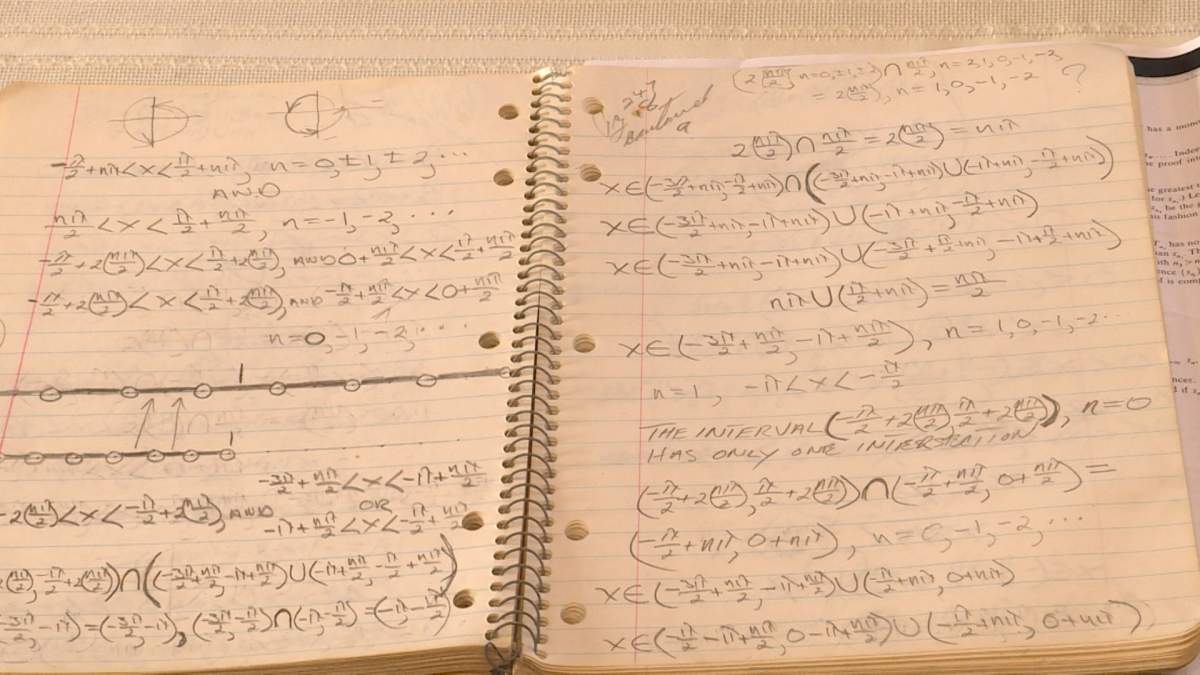 -π/2+nπ<x<π/2+nπ, n=0,±1,±2,...
AND
nπ/2<x<π/2+nπ/2, n=-1,-2,...
-π/2+2(nπ/2)<x<π/2+2(nπ/2), AND 0+nπ/2<x<π/2+nπ/2
-π/2+2(nπ/2)<x<π/2+2(nπ/2), AND -π/2+nπ/2<x<0+nπ/2
n=0,-1,-2,...
1
1
-3π/2+nπ/2<x<-π+nπ/2
OR
-2(nπ/2)<x<-π/2+2(nπ/2), AND -π+nπ/2<x<-π/2+nπ/2
-π/2+2(nπ/2))∩((-3π/2+nπ/2,-π+nπ/2)∪(-π+nπ/2,-π/2+nπ/2))
-3π/2,-π)=(-3π/2,-π), (-3π/2,-π/2)∩(-π,-π/2)=(-π,-π/2)
(2(nπ/2), n=0,±1,±2)∩nπ/2, n=2,1,0,-1,-2,
=2(nπ/2), n=1,0,-1,-2 ?
2(nπ/2)∩nπ/2=2(nπ/2)=nπ
x∈(-3π/2+nπ,-π/2+nπ)∩((-3π/2+nπ,-π+nπ)∪(-π+nπ,-π/2+nπ))
x∈(-3π/2+nπ,-π+nπ)∪(-π+nπ,-π/2+nπ)
x∈(-3π/2+nπ,-π+nπ)∪(-3π/2+π/2+nπ,-π+π/2+nπ)
nπ∪(π/2+nπ)=nπ/2
x∈(-3π/2+nπ/2,-π+nπ/2), n=1,0,-1,-2...
n=1, -π<x<-π/2
THE INTERVAL (-π/2+2(nπ/2),π/2+2(nπ/2)), n=0
HAS ONLY ONE INTERSECTION
(-π/2+2(nπ/2),π/2+2(nπ/2))∩(-π/2+nπ/2,0+nπ/2)=
(-π/2+nπ,0+nπ), n=0,-1,-2,...
x∈(-3π/2+nπ/2,-π+nπ/2)∪(π/2+nπ,0+nπ)
x∈(-π/2-π+nπ/2,0-π+nπ/2)∪(-π/2+nπ,0+nπ)